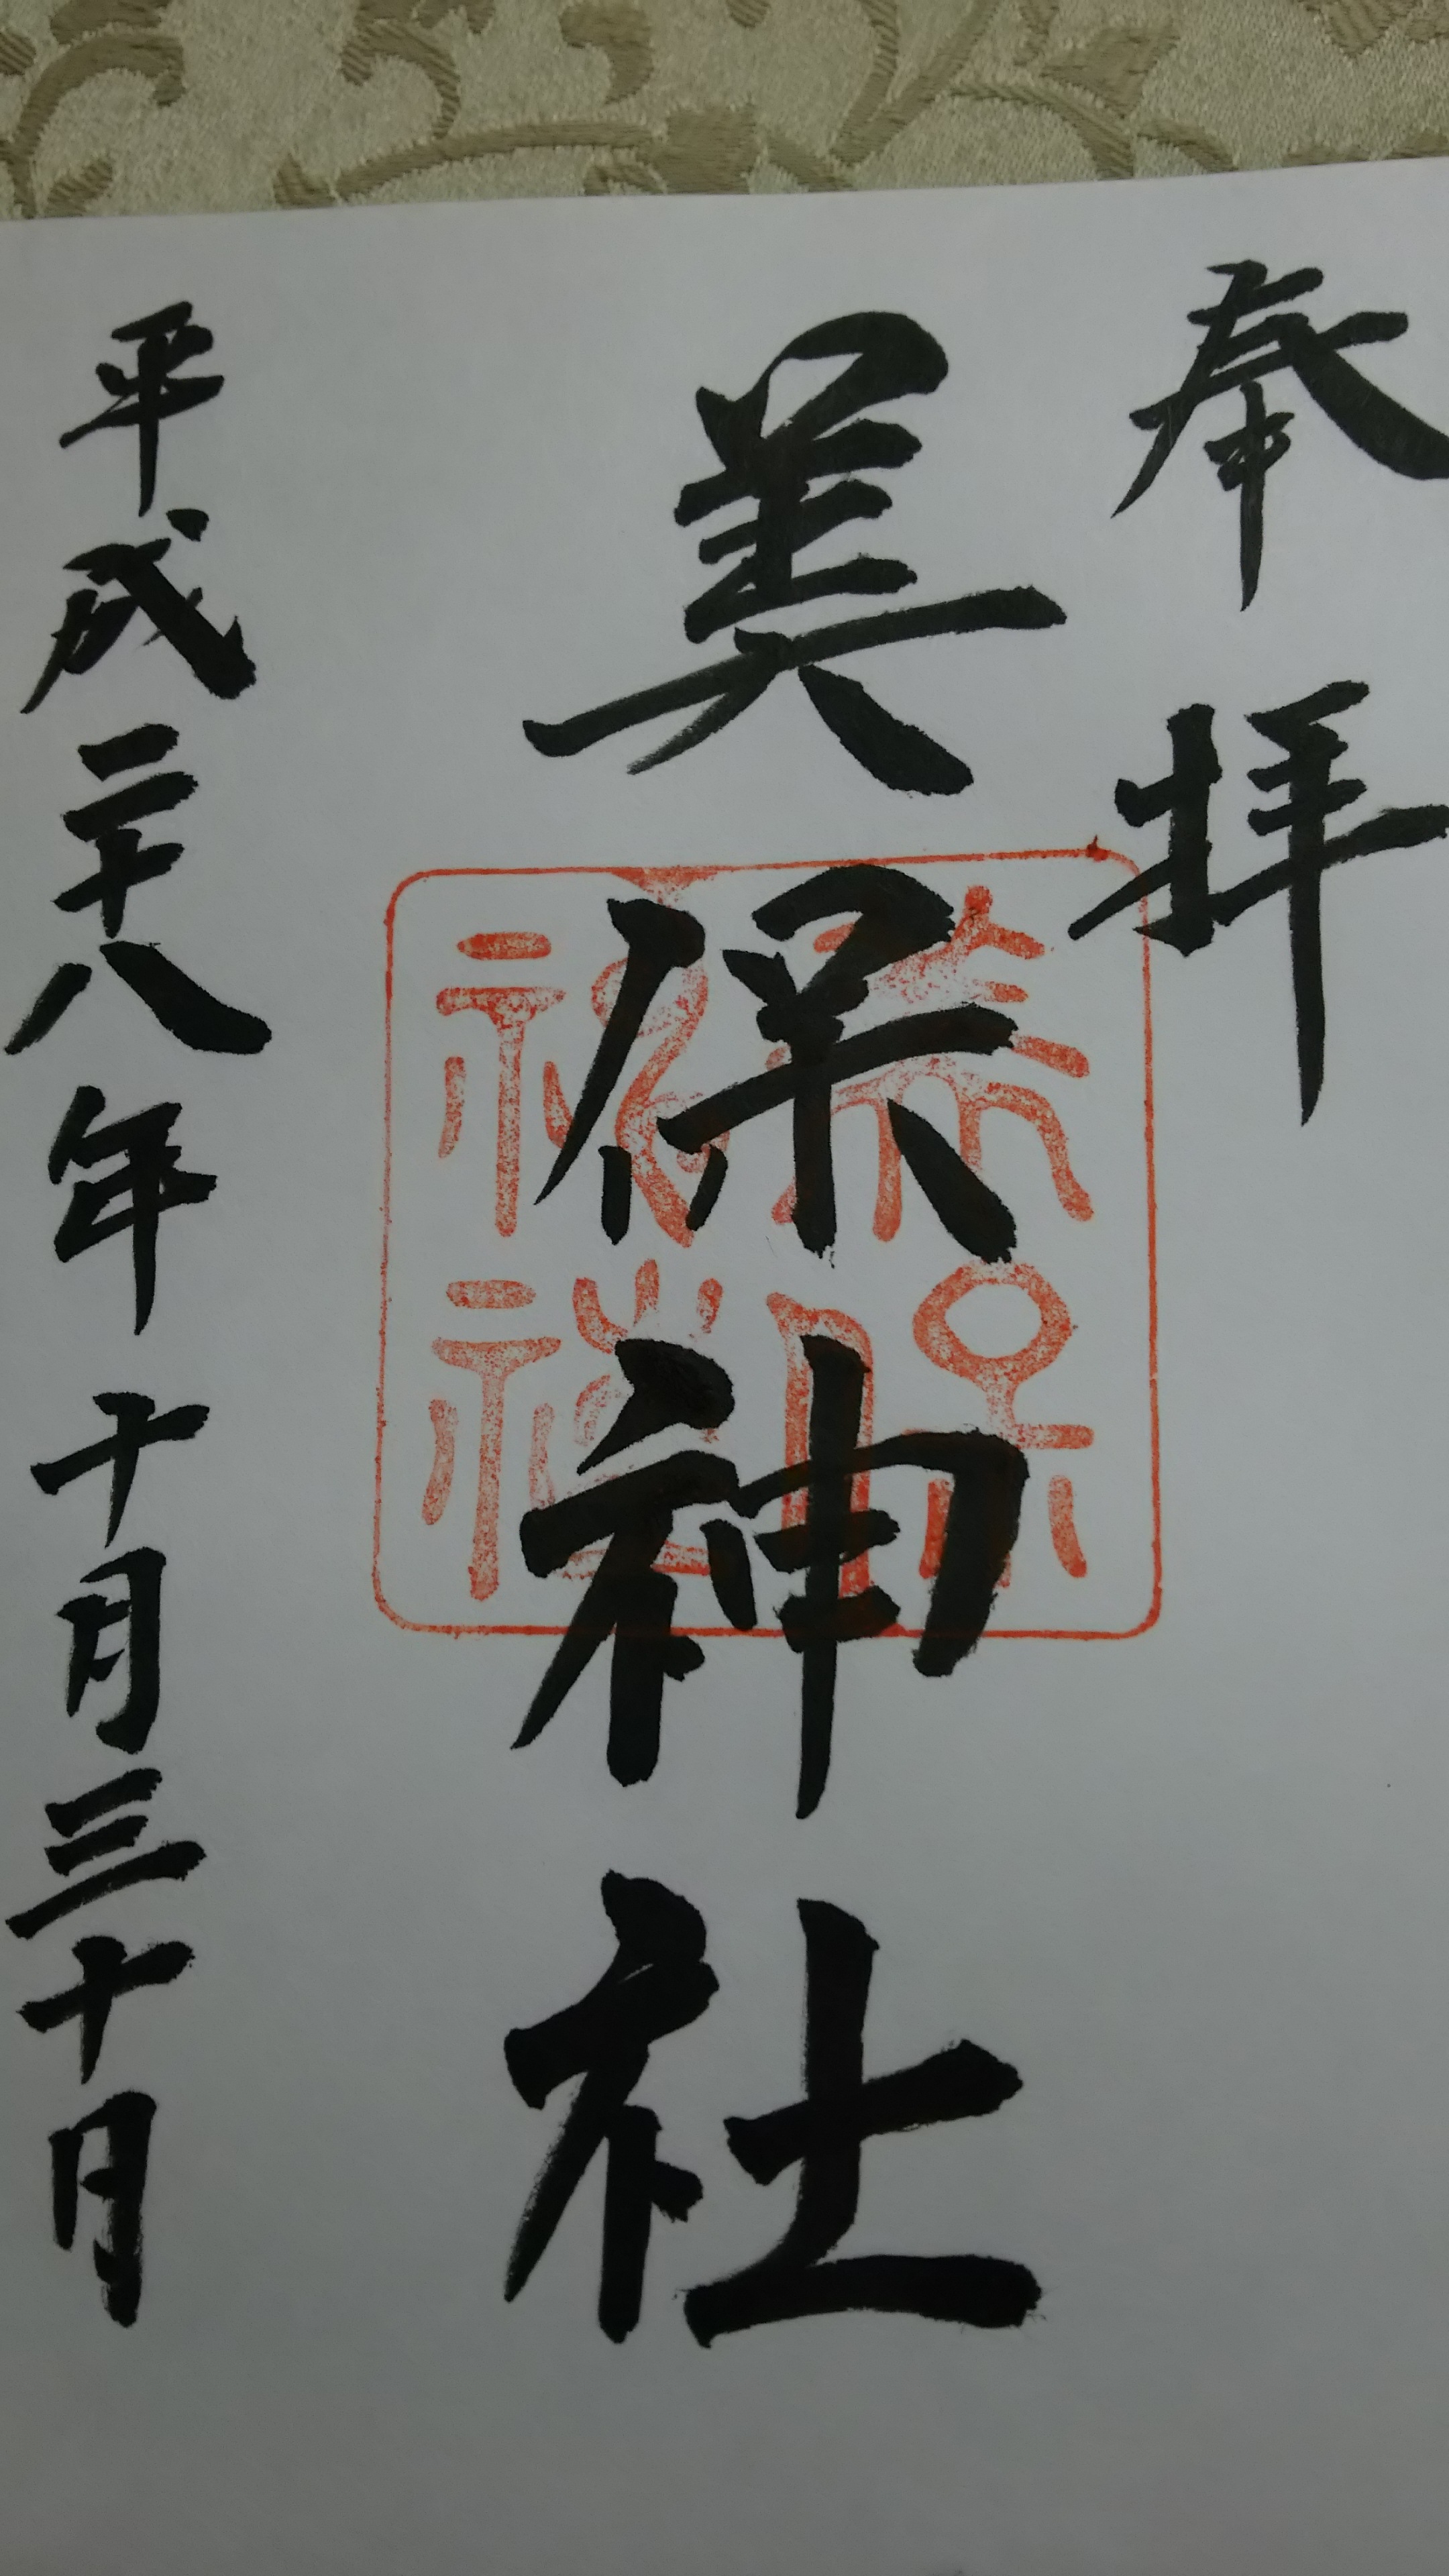 奉拝
美保神社
美保神社
平成二十八年十月三十日